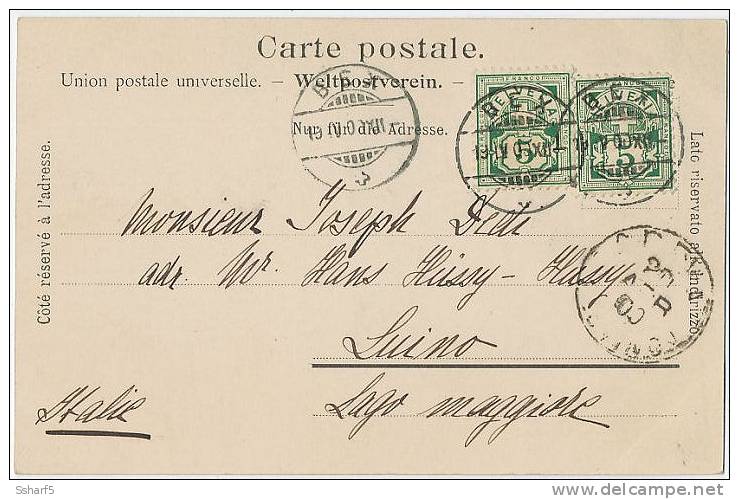 Carte postale.
Union postale universelle. — Weltpostverein. —
Nur für die Adresse.
Côté réservé à l'adresse.
Lato riservato all'indirizzo
BEX
BEX
BEX
FRANCO
HELVETIA
5
5
Monsieur Joseph Dedi
adr. Mr. Hans Hüssy-Hüssy
Luino
Italie
Lago maggiore
Ssharf5
delcampe.net